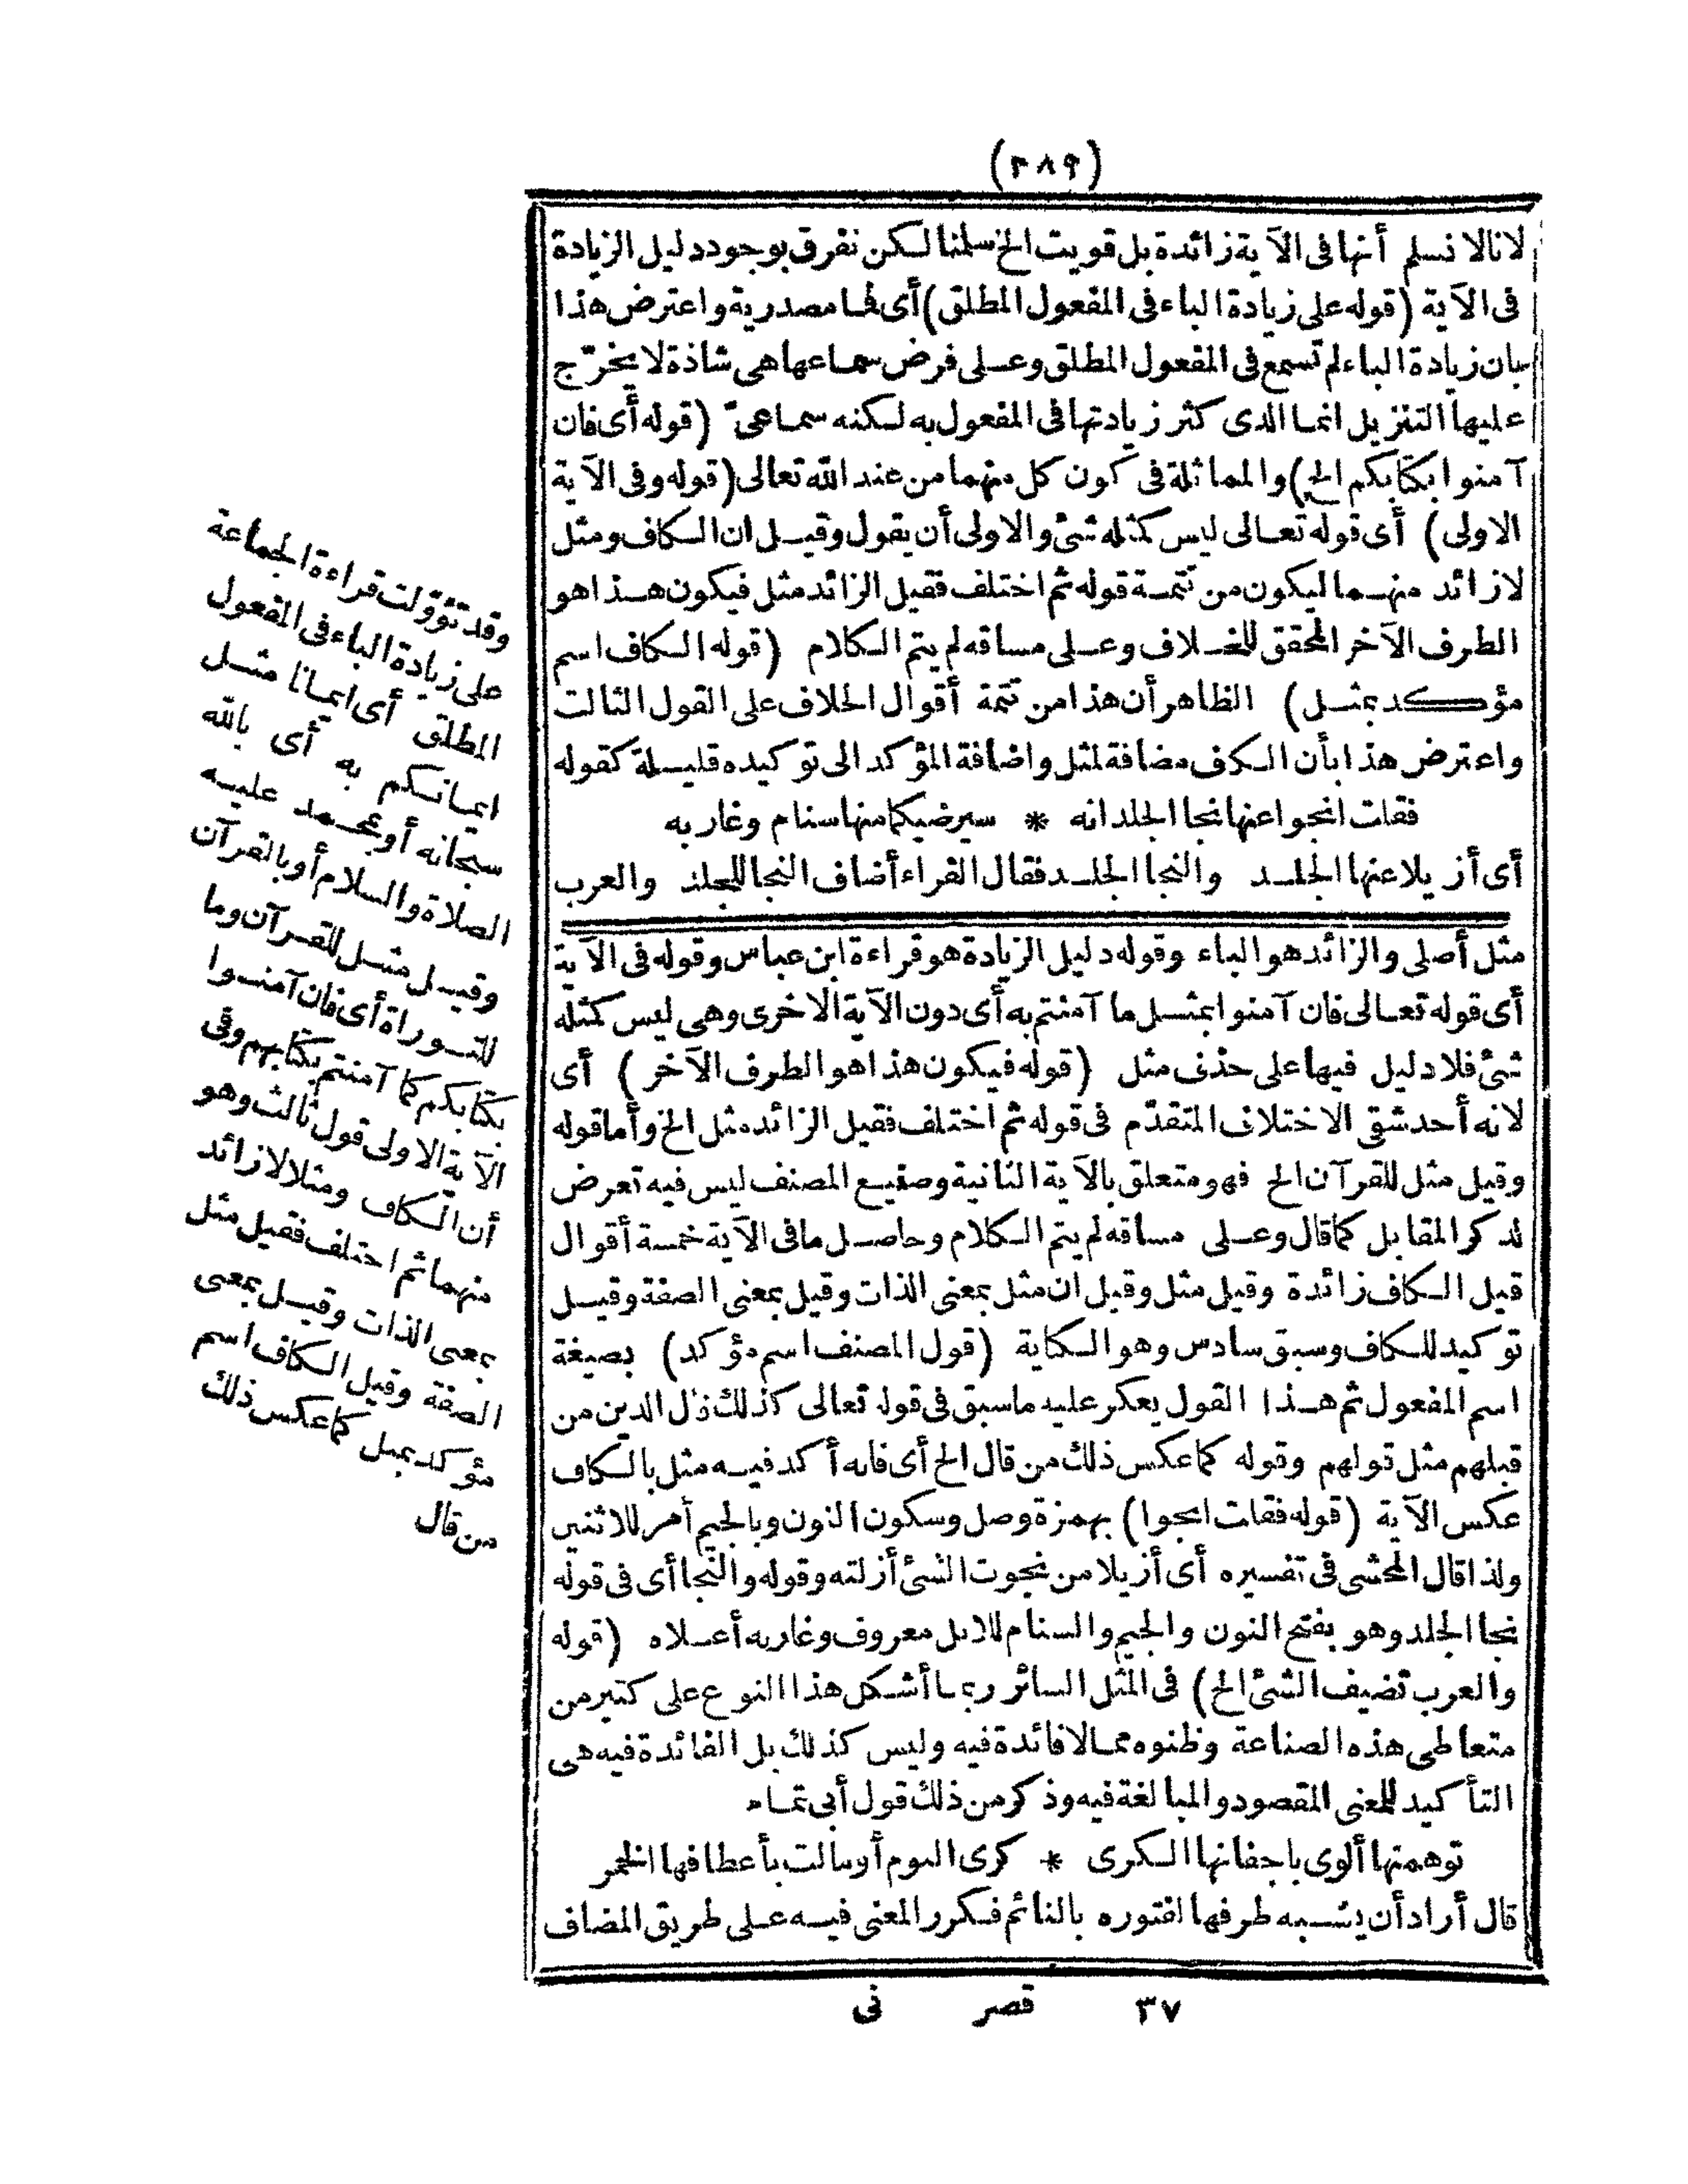 (٢٨٩)
لانا لا نسلم أنها فى الآية زائدة بل قويت الخ سلمنا لكن نفرق بوجود دليل الزيادة
فى الآية (قوله على زيادة الباء فى المفعول المطلق) أى فما مصدرية واعترض هذا
بان زيادة الباء لم تسمع فى المفعول المطلق وعلى فرض سماعها هى شاذة لا يخرّج
عليها التنزيل انما الذى كثر زيادتها فى المفعول به لكنه سماعىّ (قوله أى فان
آمنوا بكتابكم الخ) والمماثلة فى كون كل منهما من عند الله تعالى (قوله وفى الآية
الاولى) أى قوله تعالى ليس كمثله شئ والاولى أن يقول وقيل ان الكاف ومثل
لا زائد منهما ليكون من تتمة قوله ثم اختلف فقيل الزائد مثل فيكون هذا هو
الطرف الآخر المحقق للخلاف وعلى مساقه لم يتم الكلام (قوله الكاف اسم
مؤكد بمثل) الظاهر أن هذا من تتمة أقوال الخلاف على القول الثالث
واعترض هذا بأن الكاف مضافة لمثل واضافة المؤكد الى توكيده قليلة كقوله
فقلت انجوا عنها نجا الجلد انه * سيرضيكما منها سنام وغاربه
أى أزيلا عنها الجلد والنجا الجلد فقال الفراء أضاف النجا للجلد والعرب
مثل أصلى والزائد هو الباء وقوله دليل الزيادة هو قراءة ابن عباس وقوله فى الآية
أى قوله تعالى فان آمنوا بمثل ما آمنتم به أى دون الآية الاخرى وهى ليس كمثله
شئ فلا دليل فيها على حذف مثل (قوله فيكون هذا هو الطرف الآخر) أى
لانه أحد شقى الاختلاف المتقدّم فى قوله ثم اختلف فقيل الزائد مثل الخ وأما قوله
وقيل مثل للقرآن الخ فهو متعلق بالآية الثانية وصنيع المصنف ليس فيه تعرض
لذكر المقابل كما قال وعلى مساقه لم يتم الكلام وحاصل ما فى الآية خمسة أقوال
قيل الكاف زائدة وقيل مثل وقيل ان مثل بمعنى الذات وقيل بمعنى الصفة وقيل
توكيد للكاف وسبق سادس وهو الكناية (قول المصنف اسم مؤكد) بصيغة
اسم المفعول ثم هذا القول يعكر عليه ما سبق فى قوله تعالى كذلك قال الذين من
قبلهم مثل قولهم وقوله كما عكس ذلك من قال الخ أى فانه أكد فيه مثل بالكاف
عكس الآية (قوله فقلت انجوا) بهمزة وصل وسكون النون وبالجيم أمر للاثنين
ولذا قال المحشى فى تفسيره أى أزيلا من نجوت الشئ أزلته وقوله والنجا أى فى قوله
نجا الجلد وهو بفتح النون والجيم والسنام للابل معروف وغاربه أعلاه (قوله
والعرب تضيف الشئ الخ) فى المثل السائر ربما أشكل هذا النوع على كثير من
متعاطى هذه الصناعة وظنوه مما لا فائدة فيه وليس كذلك بل الفائدة فيه هى
التأكيد للمعنى المقصود والمبالغة فيه وذكر من ذلك قول أبى تمام
توهمتها ألوى باجفانها الكرى * كرى النوم أو مالت بأعطافها الخمر
قال أراد أن يشبه طرفها لفتوره بالنائم فكرر المعنى فيه على طريق المضاف
٣٧ قصر نى
وقد تؤوّلت قراءة الجماعة
على زيادة الباء فى المفعول
المطلق أى ايمانا مثل
ايمانكم به أى بالله
سبحانه أو بمحمد عليه
الصلاة والسلام أو بالقرآن
وقيل مثل للقرآن وما
للتوراة أى فان آمنوا
بكتابكم كما آمنتم بكتابهم وفى
الآية الاولى قول ثالث وهو
أن الكاف ومثلا لا زائد
منهما ثم اختلف فقيل مثل
بمعنى الذات وقيل بمعنى
الصفة وقيل الكاف اسم
مؤكد بمثل كما عكس ذلك
من قال